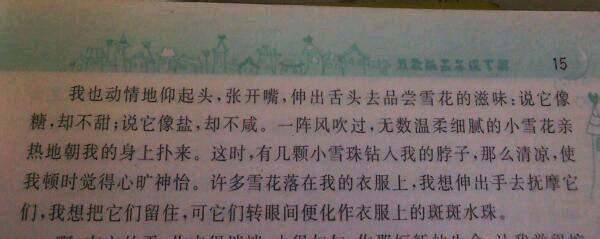 15
我也动情地仰起头,张开嘴,伸出舌头去品尝雪花的滋味:说它像
糖,却不甜;说它像盐,却不咸。一阵风吹过,无数温柔细腻的小雪花亲
热地朝我的身上扑来。这时,有几颗小雪珠钻入我的脖子,那么清凉,使
我顿时觉得心旷神怡。许多雪花落在我的衣服上,我想伸出手去抚摩它
们,我想把它们留住,可它们转眼间便化作衣服上的斑斑水珠。